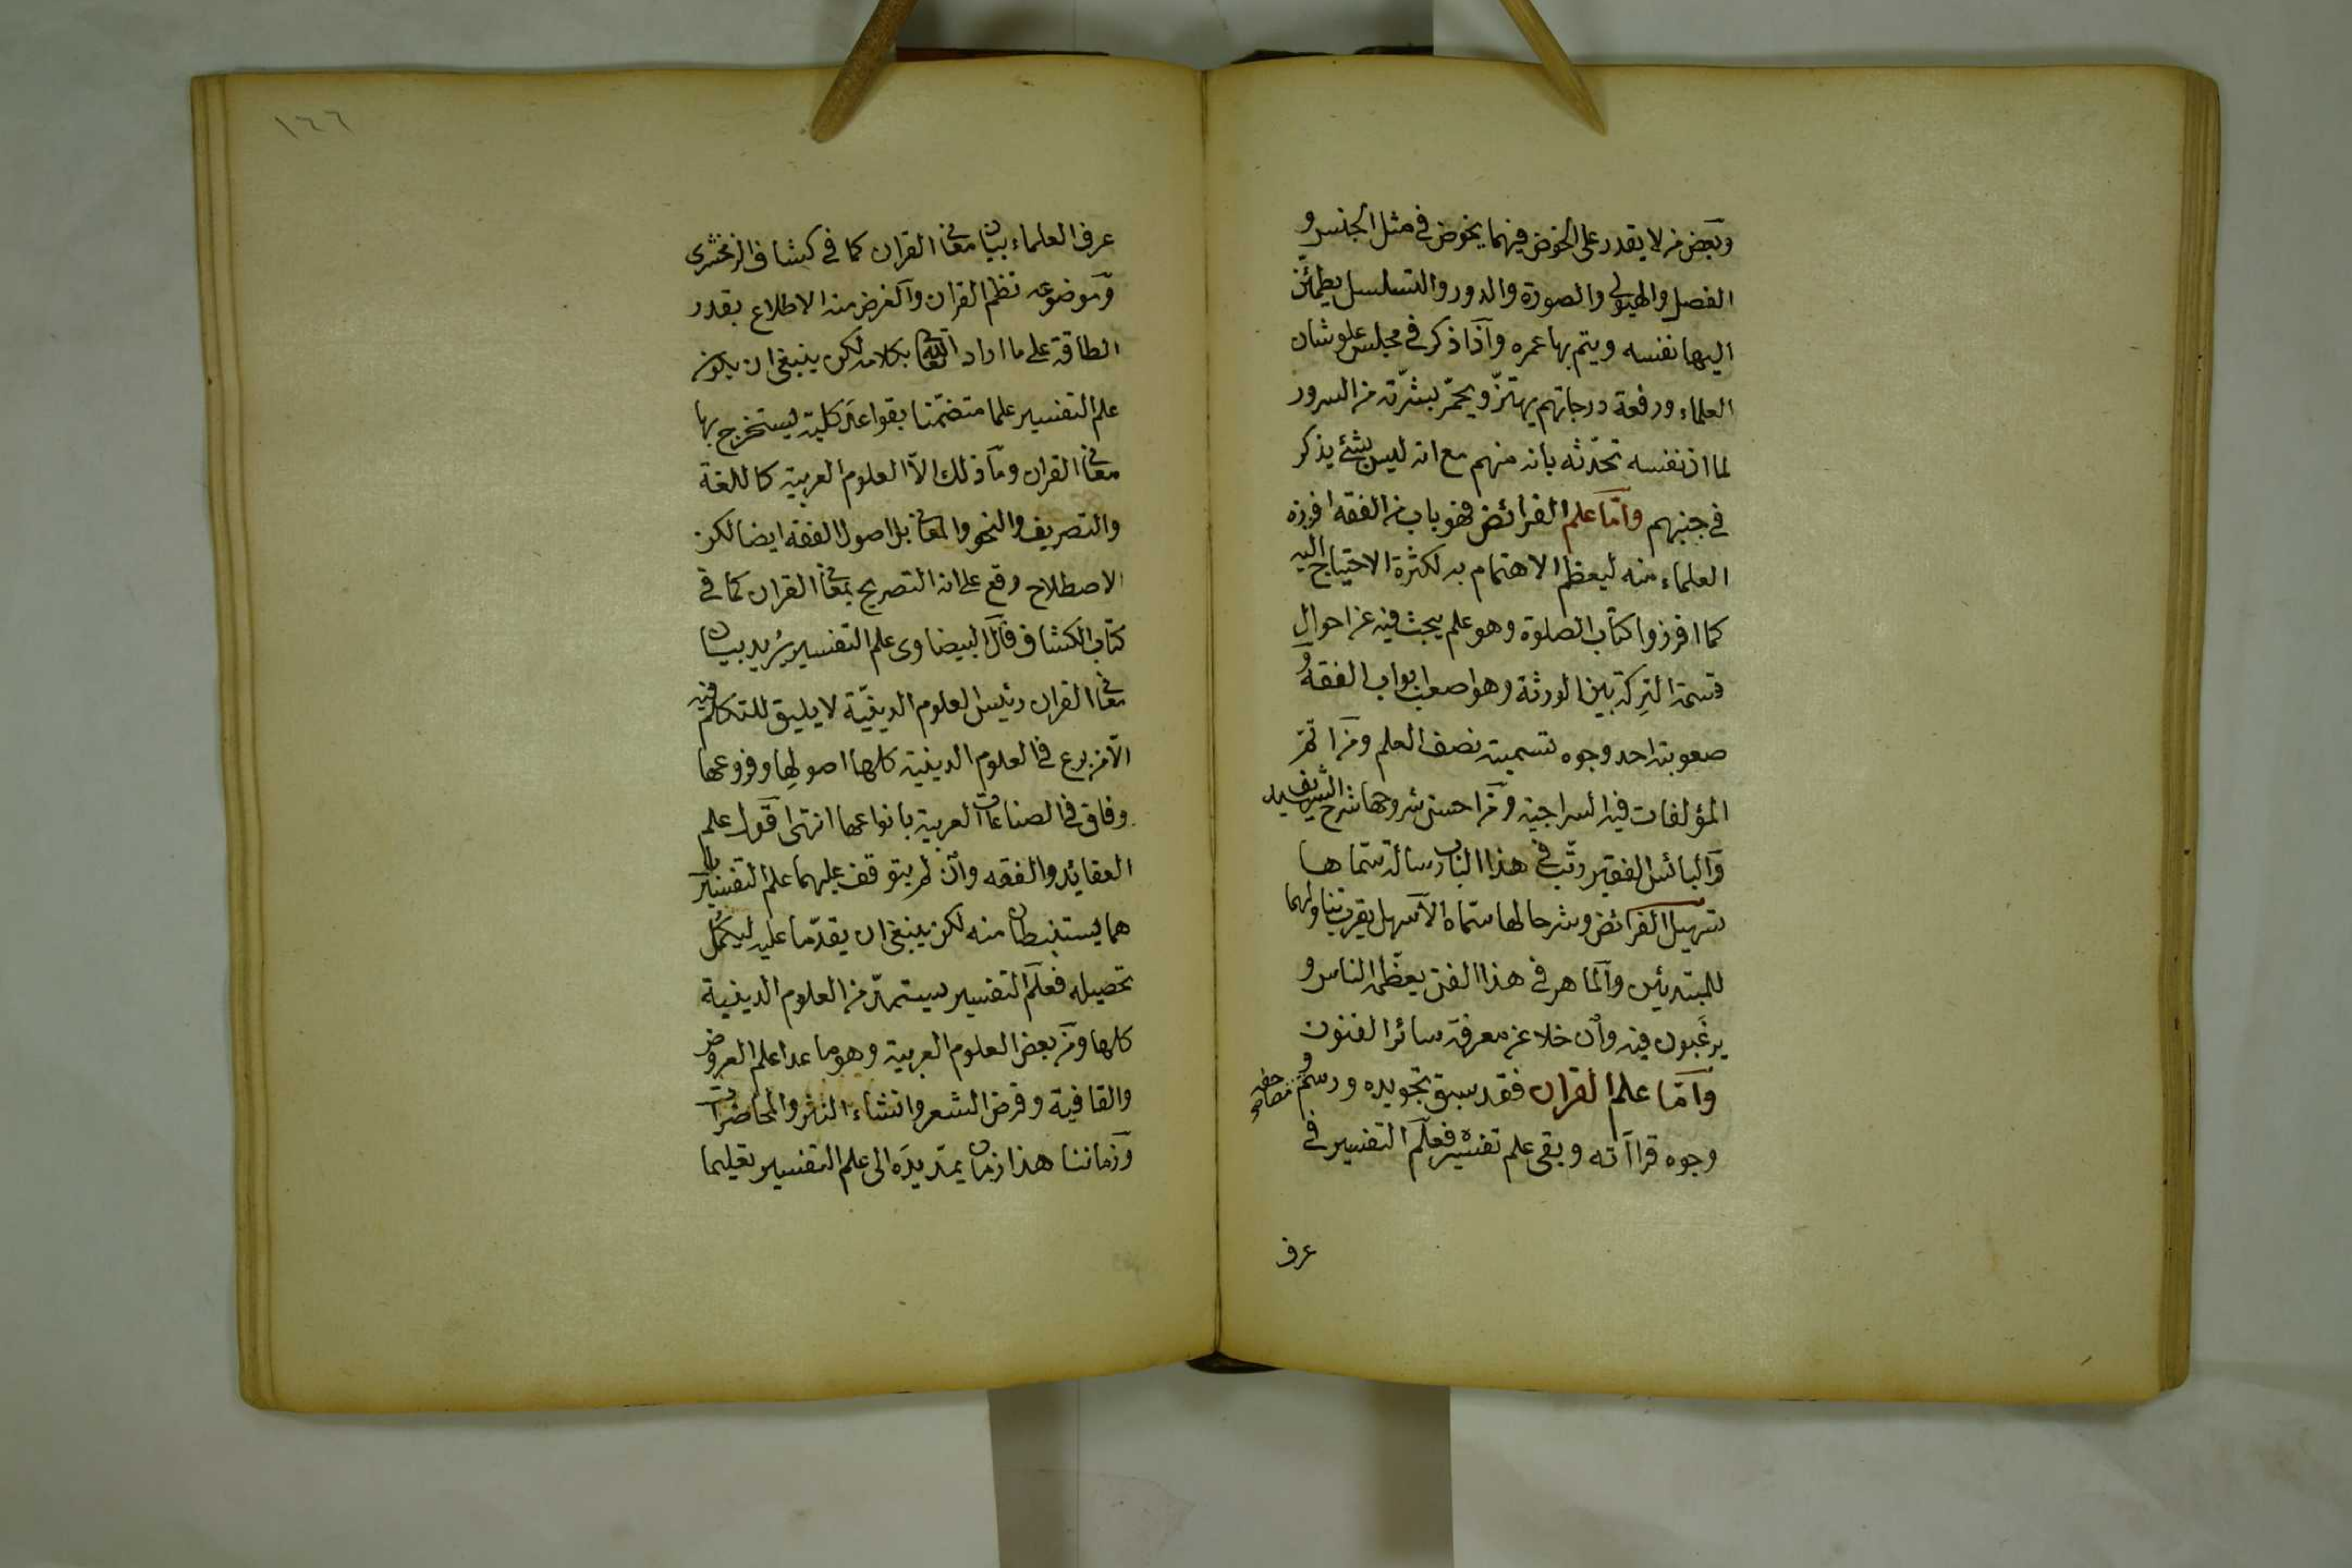 وبعض من لا يقدر على الخوض فيهما يخوض في مثل الجنس و
الفصل والهيولى والصورة والدور والتسلسل يطمئن
اليها نفسه ويتم بها عمره واذا ذكر في مجلس علو شان
العلماء ورفعة درجاتهم يهتز ويحمر بشرته من السرور
لما ان نفسه تحدثه بانه منهم مع انه ليس بشئ يذكر
في جنبهم واما علم الفرائض فهو باب من الفقه افرزه
العلماء منه ليعظم الاهتمام به لكثرة الاحتياج اليه
كما افرزوا كتاب الصلوة وهو علم يبحث فيه عن احوال
قسمة التركة بين الورثة وهو اصعب ابواب الفقه و
صعوبته احد وجوه تسميته نصف العلم ومن اتم
المؤلفات فيه السراجية ومن احسن شروحها شرح السيد الشريف
والبائس الفقير رتب في هذا الباب رسالة سماها
تسهيل الفرائض وشرحا لها سماه الاسهل يقرب تناولهما
للمبتدئين والماهر في هذا الفن يعظمه الناس و
يرغبون فيه وان خلا عن معرفة سائر الفنون
واما علم القران فقد سبق تجويده ورسم مصاحفه و
وجوه قراآته وبقى علم تفسيره فعلم التفسير في
عرف
١٦٦
عرف العلماء بيان معاني القران كما في كشاف الزمخشرى
وموضوعه نظم القران والغرض منه الاطلاع بقدر
الطاقة على ما اراد الله تعالى بكلامه لكن ينبغى ان يكون
علم التفسير علما متضمنا بقواعد كلية يستخرج بها
معاني القران وما ذلك الا العلوم العربية كاللغة
والتصريف والنحو والمعاني بل اصول الفقه ايضا لكن
الاصطلاح وقع على انه التصريح بمعاني القران كما في
كتاب الكشاف قال البيضاوى علم التفسير يريد بيان
معاني القران رئيس العلوم الدينية لا يليق للتكلم فيه
الا من برع في العلوم الدينية كلها اصولها وفروعها
وفاق في الصناعات العربية بانواعها انتهى اقول علم
العقائد والفقه وان لم يتوقف عليهما علم التفسير بل
هما يستنبطان منه لكن ينبغى ان يقدما عليه ليكمل
تحصيله فعلم التفسير يستمد من العلوم الدينية
كلها ومن بعض العلوم العربية وهو ما عدا علم العروض
والقافية وقرض الشعر وانشاء النثر والمحاضرات
وزماننا هذا زمان يمتد يده الى علم التفسير تعليما